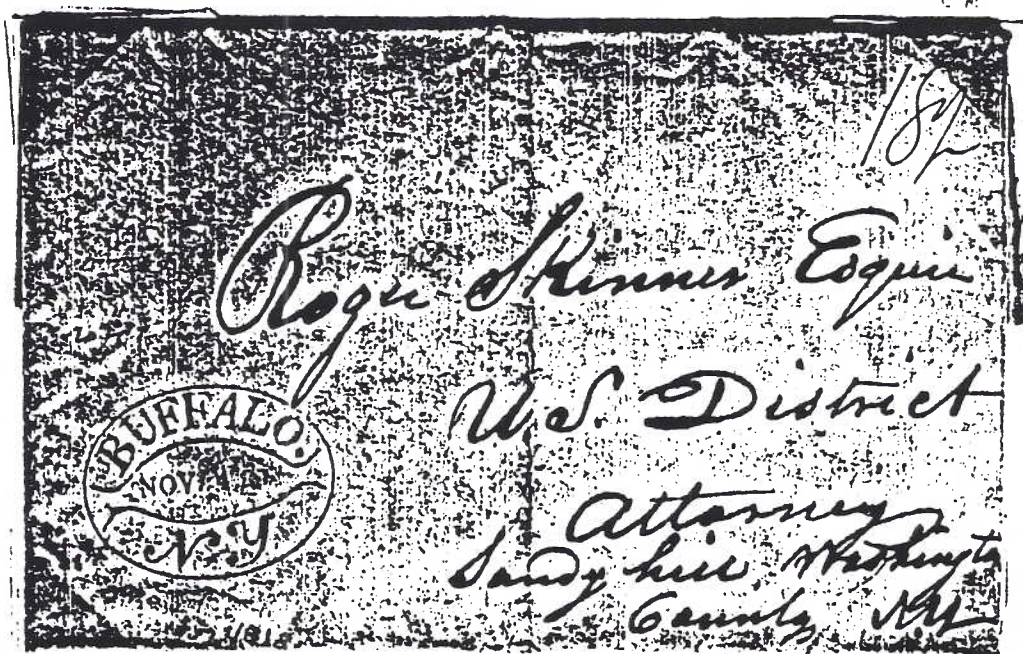 18½
Roger Skinner Esquire
U.S. District
Attorney
Sandy hill Washington
County NY
BUFFALO.
NOV
N.Y